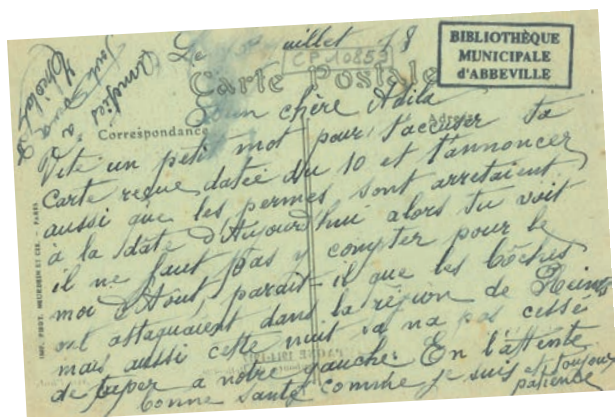 Le juillet 18
CP 10853
BIBLIOTHÈQUE
MUNICIPALE
d'ABBEVILLE
Carte Postale
Correspondance
Adresse
chère Adila
Vite un petit mot pour t'accuser ta
Carte reçue datée du 10 et t'annoncer
aussi que les permes sont arretaient
à la date d'Aujourd'hui alors tu voit
il ne faut pas y compter pour le
moi d'Aout, parait-il que les bôches
ont attaquaient dans la région de Reims
mais aussi cette nuit sa na pas cessé
de taper a notre gauche. En l'attente
bonne santé comme je suis et toujour
patience
Amitiés
à
IMP. PHOT. NEURDEIN ET CIE. - PARIS